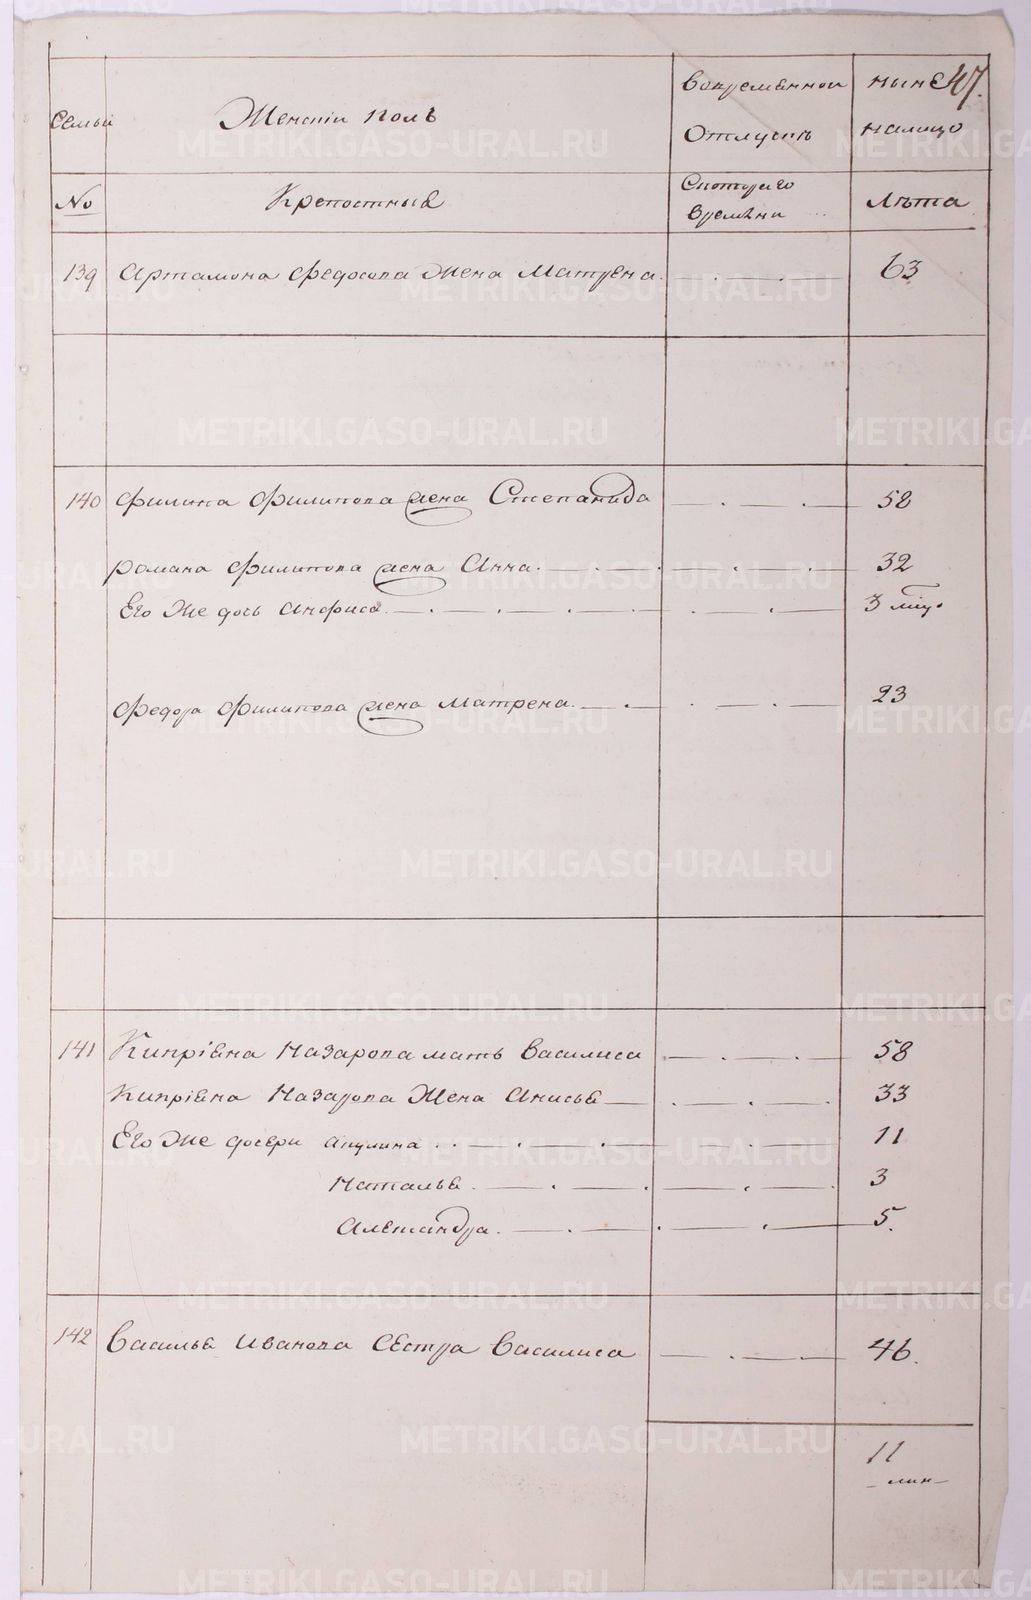 47.
Семьи
Женскiй полъ
Вовременной
Отлучкѣ
нынѣ
налицо
No
Крепостныѣ
Скоторaго
времѣни
Лѣта
139 Артамона Федосова Жена Матрена. 63
140 Филипа Филипова жена Степанида 58
романа Филипова жена Анна. 32
Его Же дочь Анфиса. 3 мѣц.
Федора Филипова жена Матрена. 23
141 Кипрiѣна Назарова мать Василиса 58
Кипрiѣна Назарова Жена Анисьѣ 33
Его Же дочери Акулина 11
Натальѣ. 3
Александра. 5.
142 Васильѣ Иванова Сѣстра Василиса 46.
11
METRIKI.GASO-URAL.RU